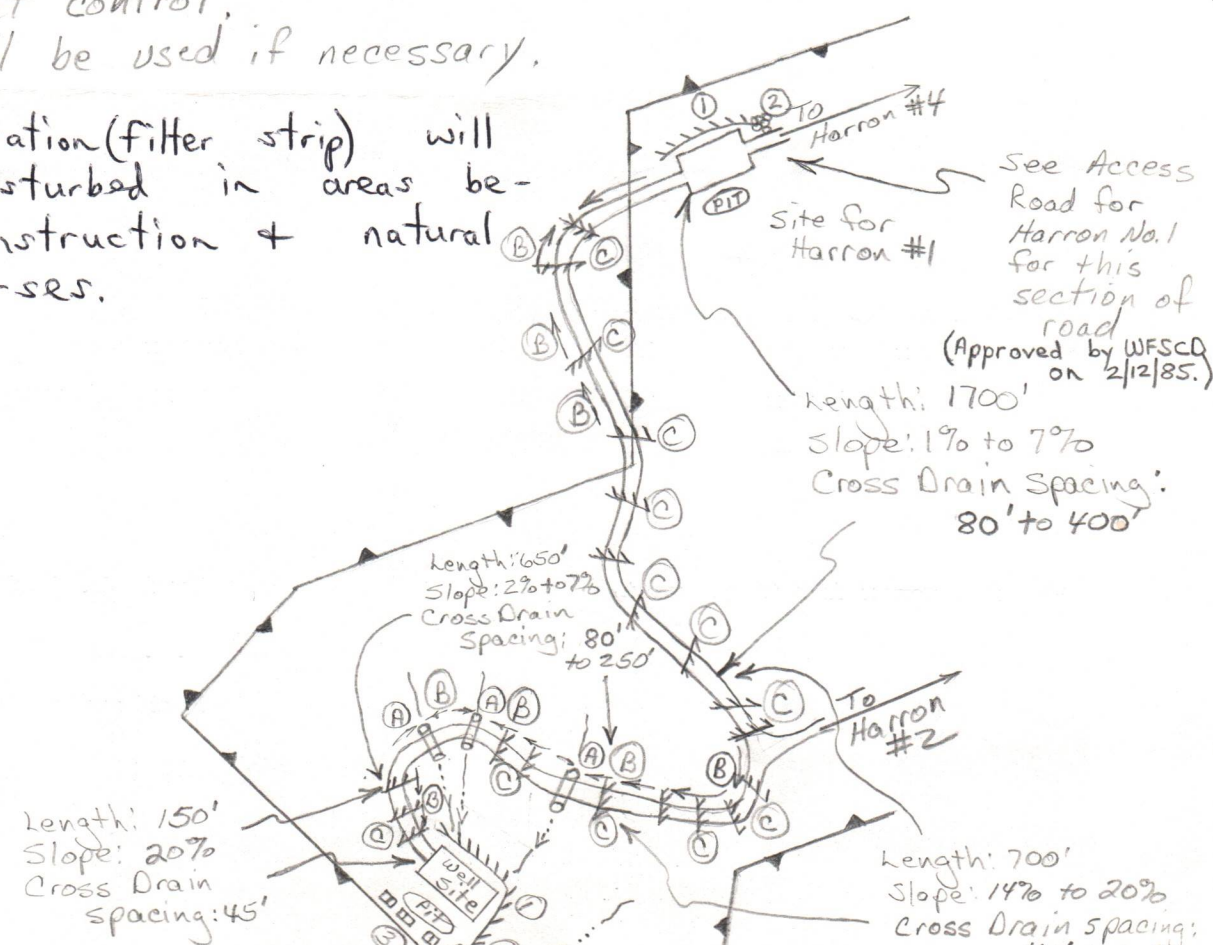 control.
be used if necessary.
ation (filter strip) will
sturbed in areas be-
nstruction + natural
-ses.
①
②
TO
Harron #4
PIT
Site for
Harron #1
See Access
Road for
Harron No.1
for this
section of
road
(Approved by WFSCD
on 2/12/85.)
B
C
B
C
B
C
C
Length: 1700'
Slope: 1% to 7%
Cross Drain Spacing:
80' to 400'
Length: 650'
Slope: 2% to 7%
Cross Drain
Spacing: 80'
to 250'
C
C
C
To
Harron
#2
A
B
A
B
A
B
B
C
C
C
C
B
C
Length: 150'
Slope: 20%
Cross Drain
Spacing: 45'
Well
Site
PIT
③
Length: 700'
Slope: 14% to 20%
Cross Drain Spacing: